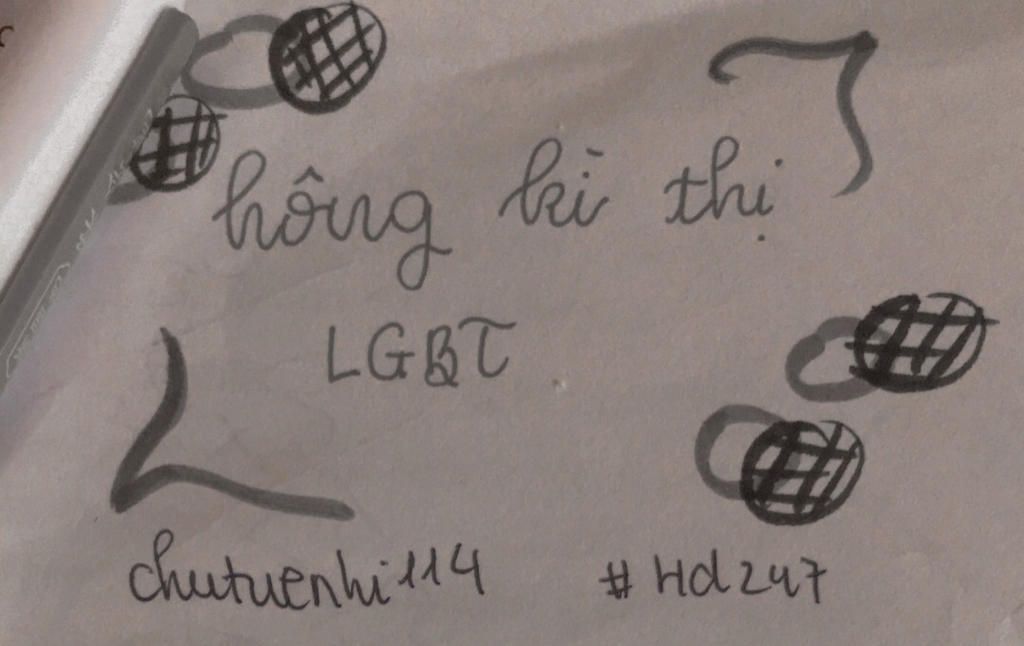 hông kì thị
LGBT
chutuenhi114 #Hd247